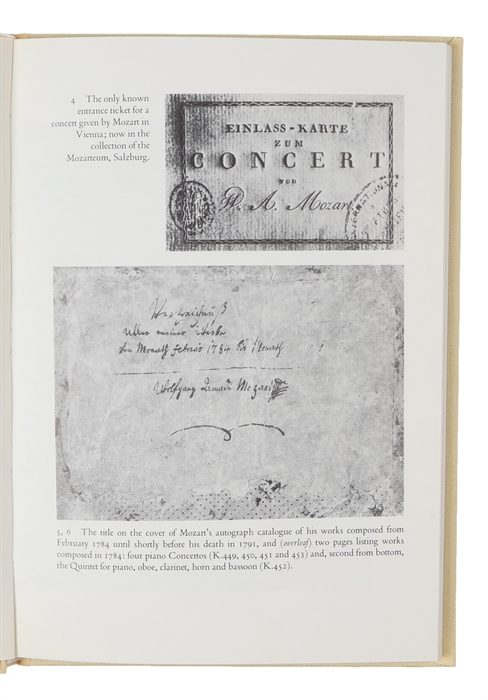 4 The only known
entrance ticket for a
concert given by Mozart in
Vienna; now in the
collection of the
Mozarteum, Salzburg.
EINLASS-KARTE
ZUM
CONCERT
VON
W. A. Mozart
Verzeichnüß
aller meiner Werke
vom Monath febrario 1784 bis Monath 1
Wolfgang Amadé Mozart
5, 6 The title on the cover of Mozart's autograph catalogue of his works composed from
February 1784 until shortly before his death in 1791, and (overleaf) two pages listing works
composed in 1784: four piano Concertos (K.449, 450, 451 and 453) and, second from bottom,
the Quintet for piano, oboe, clarinet, horn and bassoon (K.452).